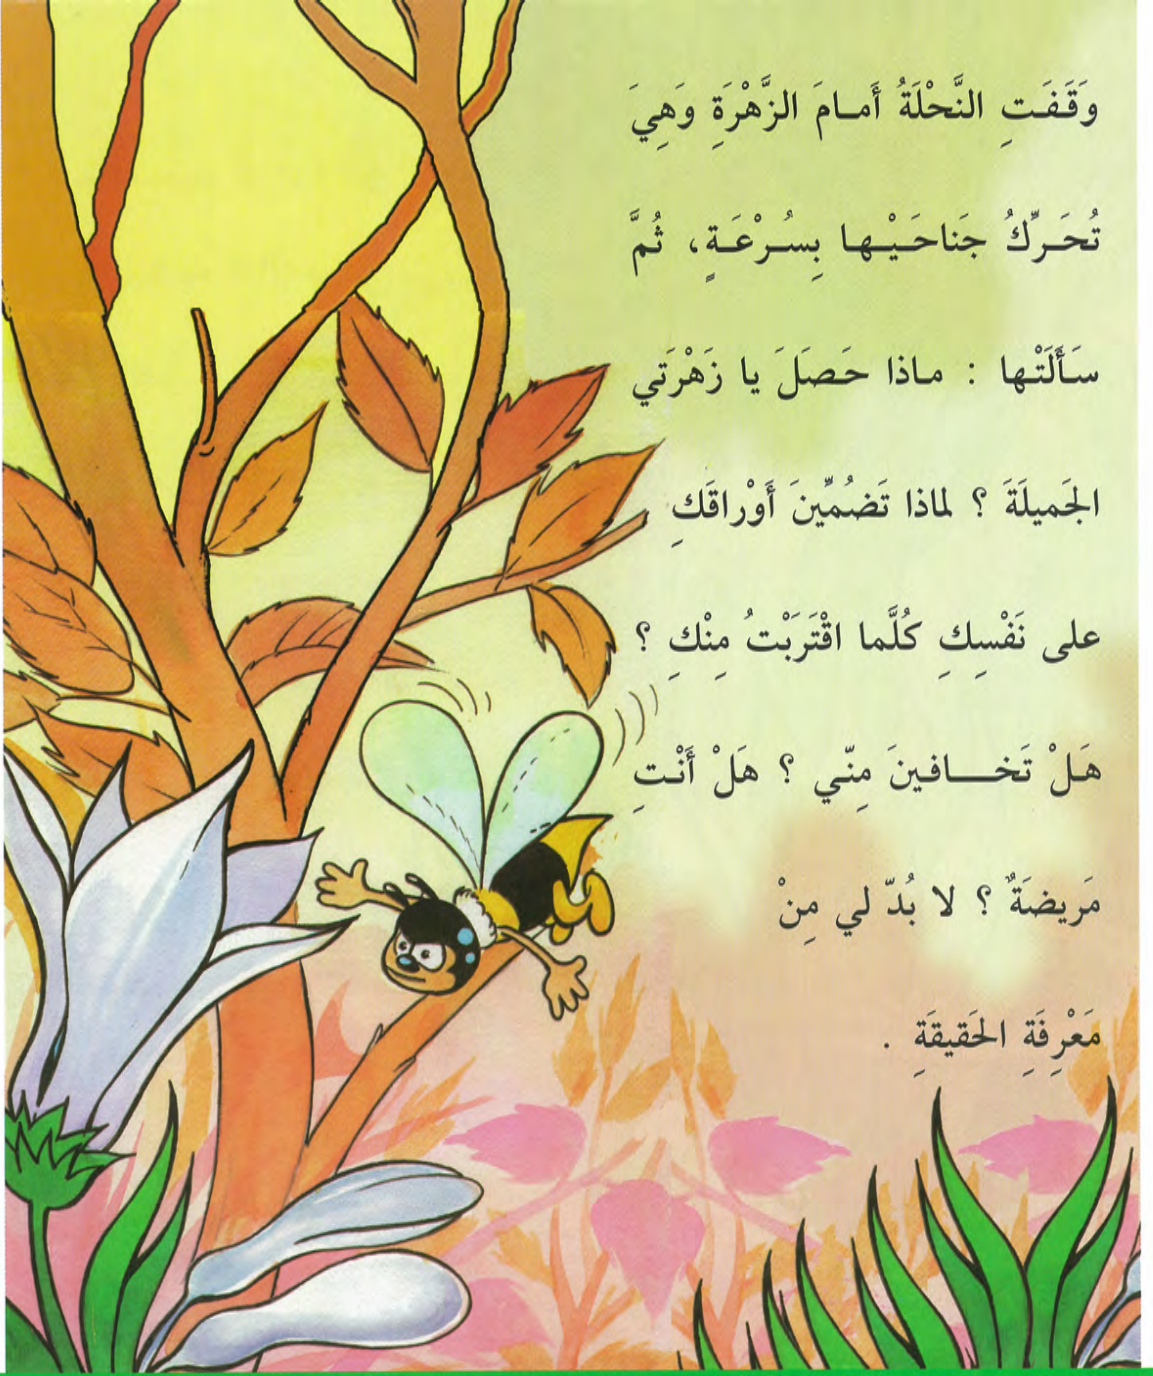 وَقَفَتِ النَّحْلَةُ أَمامَ الزَّهْرَةِ وَهِيَ
تُحَرِّكُ جَناحَيْها بِسُرْعَةٍ، ثُمَّ
سَأَلَتْها : ماذا حَصَلَ يا زَهْرَتي
الجَميلَةَ ؟ لماذا تَضُمِّينَ أَوْراقَكِ
على نَفْسِكِ كُلَّما اقْتَرَبْتُ مِنْكِ ؟
هَلْ تَخافينَ مِنّي ؟ هَلْ أَنْتِ
مَريضَةٌ ؟ لا بُدّ لي مِنْ
مَعْرِفَةِ الحَقيقَةِ .